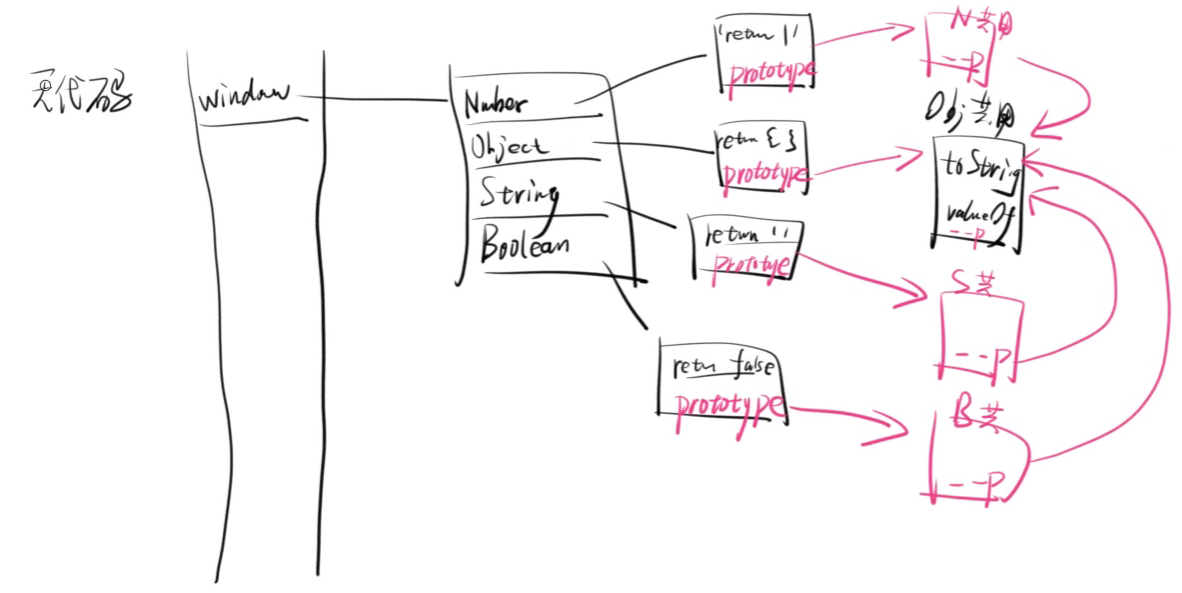 无代码
window
Number
Object
String
Boolean
'return 1'
prototype
return { }
prototype
return ''
prototye
retun false
prototype
N共用
--P
Obj共用
toString
valueOf
--P
S共
--P
B共
--P